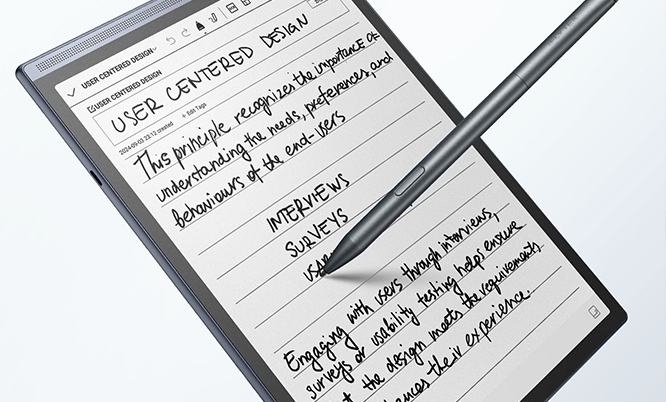 USER CENTERED DESIGN
USER CENTERED DESIGN
USER CENTERED DESIGN
2024-09-03 22:12 created + Edit Tags
This principle recognizes the importance of
understanding the needs, preferences, and
behaviours of the end-users
INTERVIEWS
SURVEYS
Engaging with users through interviews,
surveys or usability testing helps ensure
the design meets the requirements
their experience.